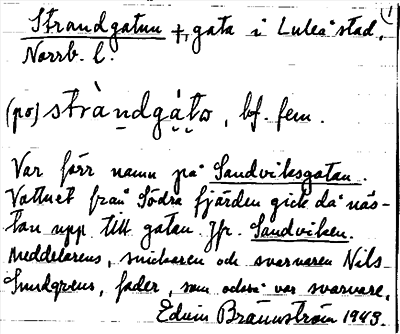 Strandgatan +, gata i Luleå stad, 1
Norrb. l.
(po) stràn̥dgá̤ta̤, bf. fem.
Var förr namn på Sandviksgatan.
Vattnet från Södra fjärden gick då näs-
tan upp till gatan. Jfr. Sandviken.
Meddelarens, snickaren och svarvaren Nils
Lundgrens, fader, som också var svarvare.
Edvin Brännström 1943.